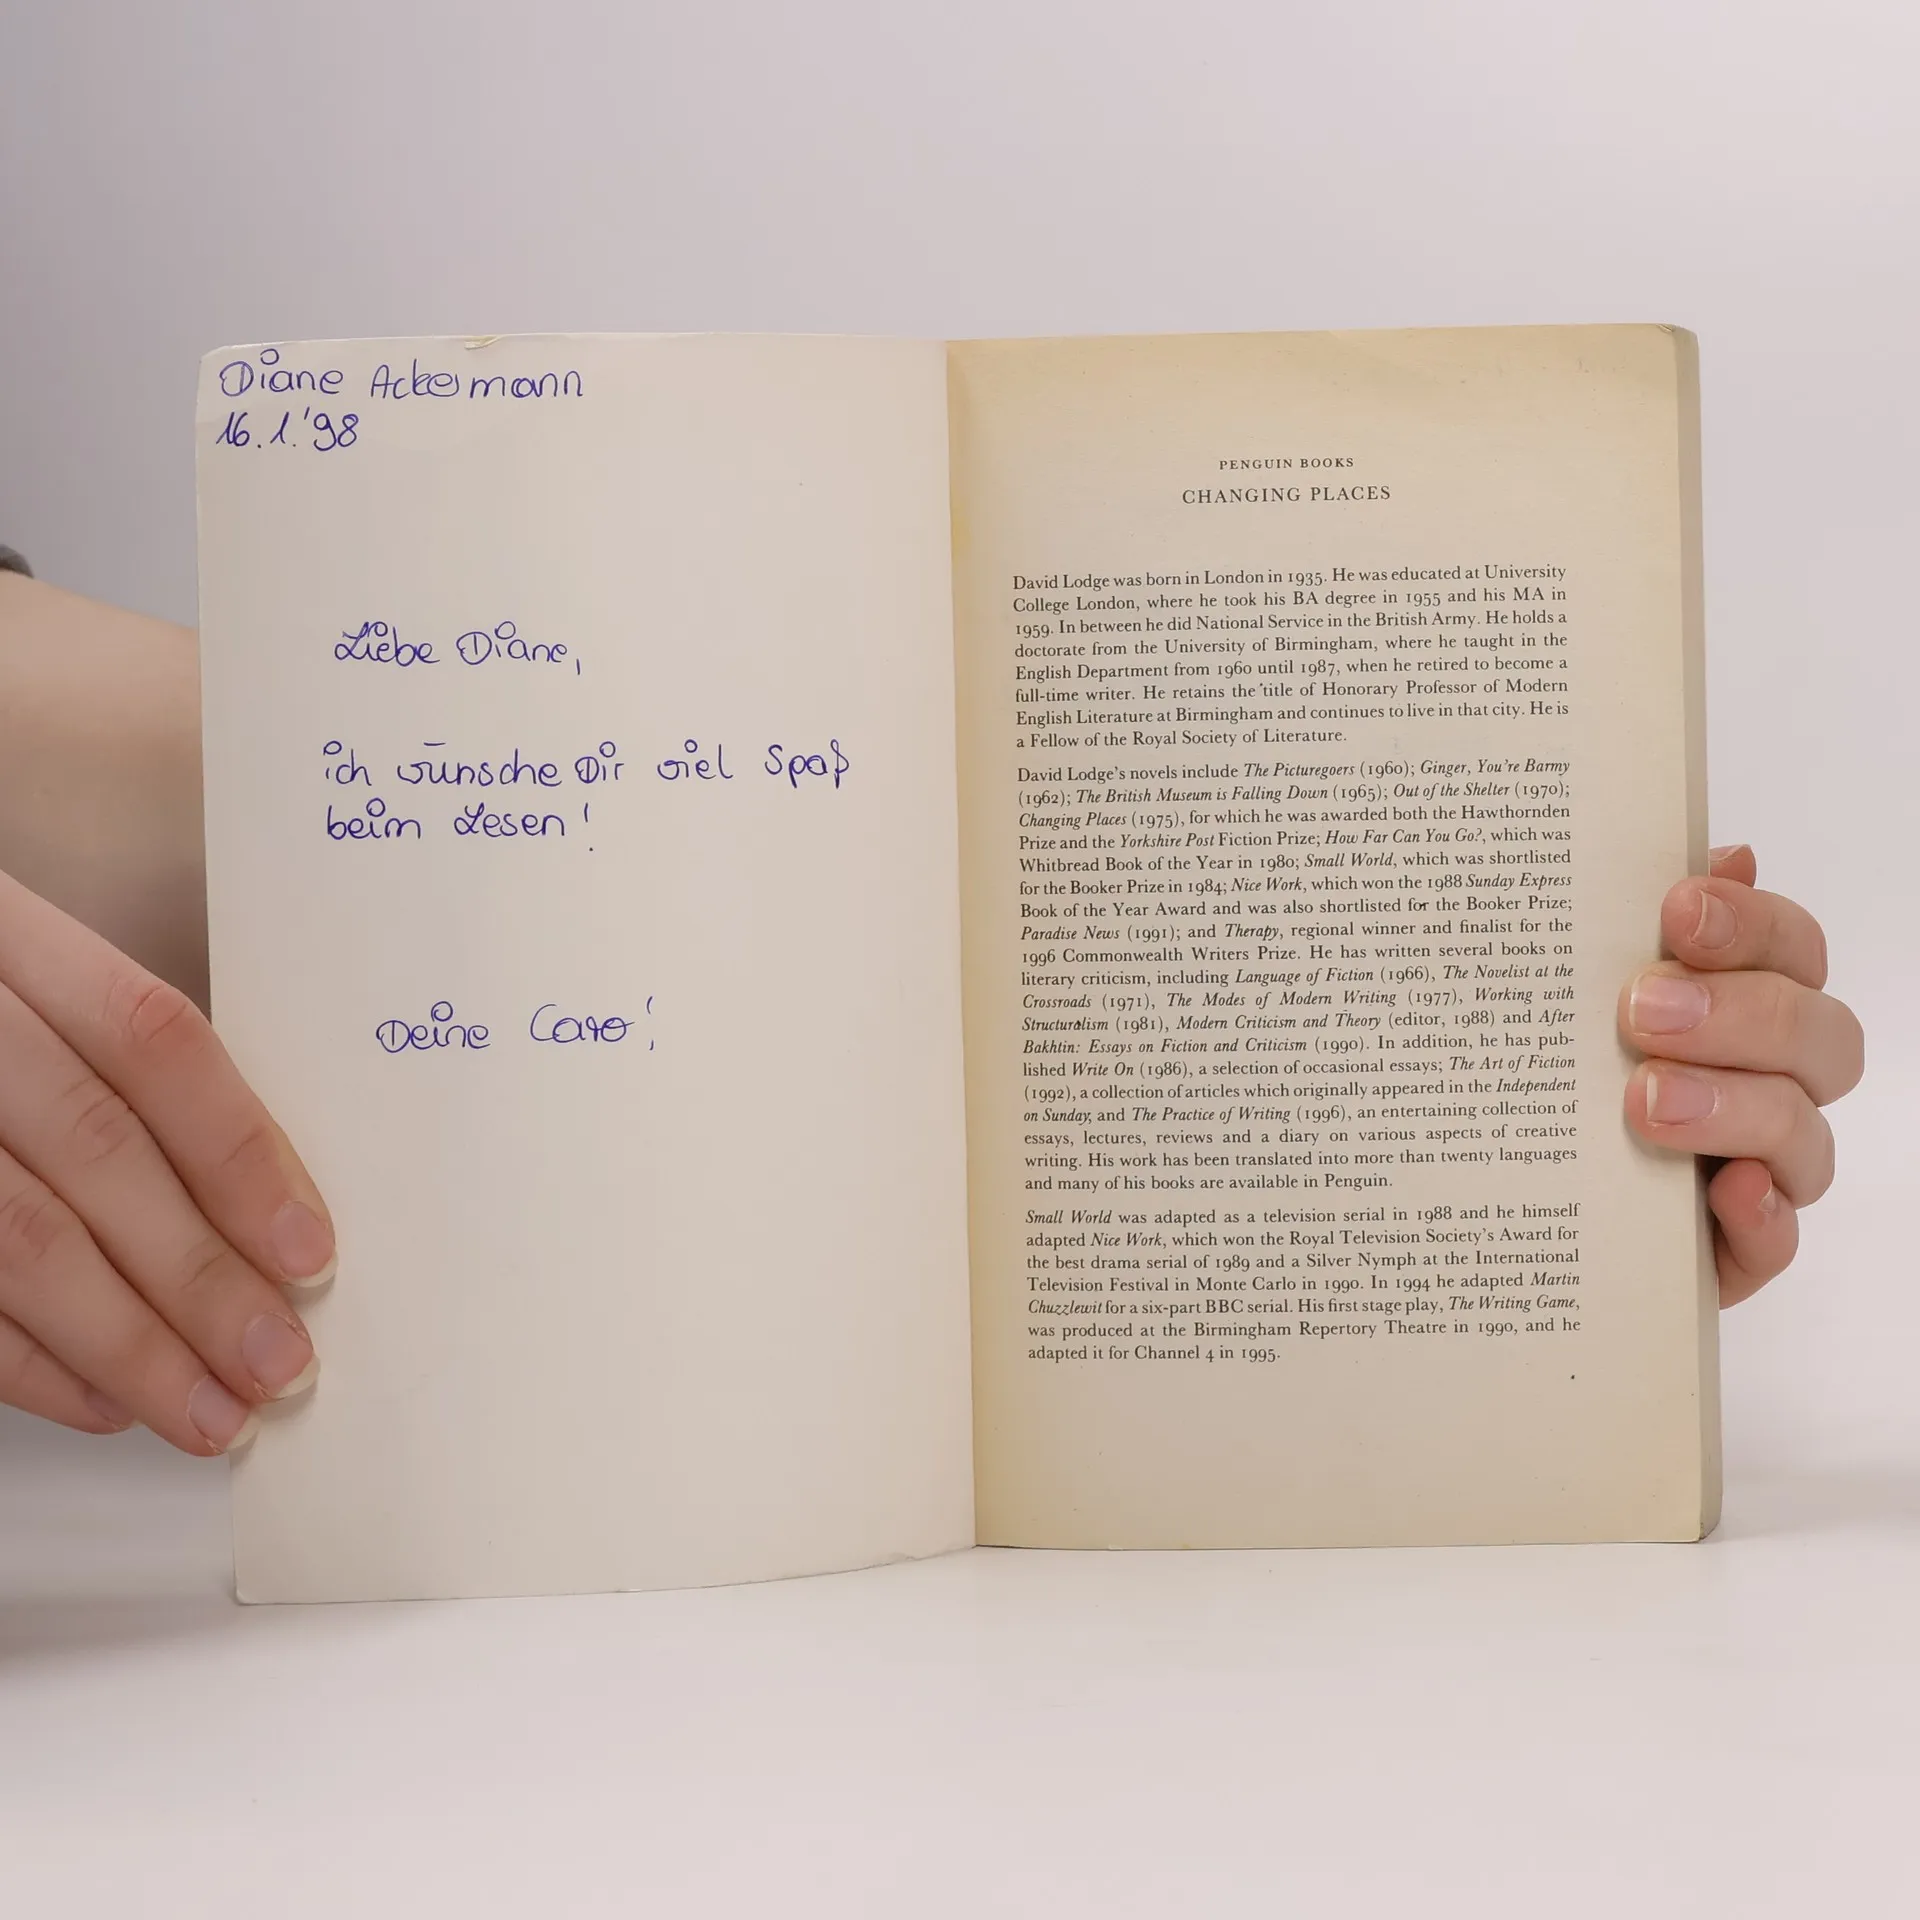 Diane Ackermann
16.1.'98
Liebe Diane,
ich wünsche Dir viel Spaß
beim Lesen!
Deine Caro!
PENGUIN BOOKS
CHANGING PLACES
David Lodge was born in London in 1935. He was educated at University
College London, where he took his BA degree in 1955 and his MA in
1959. In between he did National Service in the British Army. He holds a
doctorate from the University of Birmingham, where he taught in the
English Department from 1960 until 1987, when he retired to become a
full-time writer. He retains the title of Honorary Professor of Modern
English Literature at Birmingham and continues to live in that city. He is
a Fellow of the Royal Society of Literature.
David Lodge's novels include The Picturegoers (1960); Ginger, You're Barmy
(1962); The British Museum is Falling Down (1965); Out of the Shelter (1970);
Changing Places (1975), for which he was awarded both the Hawthornden
Prize and the Yorkshire Post Fiction Prize; How Far Can You Go?, which was
Whitbread Book of the Year in 1980; Small World, which was shortlisted
for the Booker Prize in 1984; Nice Work, which won the 1988 Sunday Express
Book of the Year Award and was also shortlisted for the Booker Prize;
Paradise News (1991); and Therapy, regional winner and finalist for the
1996 Commonwealth Writers Prize. He has written several books on
literary criticism, including Language of Fiction (1966), The Novelist at the
Crossroads (1971), The Modes of Modern Writing (1977), Working with
Structuralism (1981), Modern Criticism and Theory (editor, 1988) and After
Bakhtin: Essays on Fiction and Criticism (1990). In addition, he has pub-
lished Write On (1986), a selection of occasional essays; The Art of Fiction
(1992), a collection of articles which originally appeared in the Independent
on Sunday, and The Practice of Writing (1996), an entertaining collection of
essays, lectures, reviews and a diary on various aspects of creative
writing. His work has been translated into more than twenty languages
and many of his books are available in Penguin.
Small World was adapted as a television serial in 1988 and he himself
adapted Nice Work, which won the Royal Television Society's Award for
the best drama serial of 1989 and a Silver Nymph at the International
Television Festival in Monte Carlo in 1990. In 1994 he adapted Martin
Chuzzlewit for a six-part BBC serial. His first stage play, The Writing Game,
was produced at the Birmingham Repertory Theatre in 1990, and he
adapted it for Channel 4 in 1995.